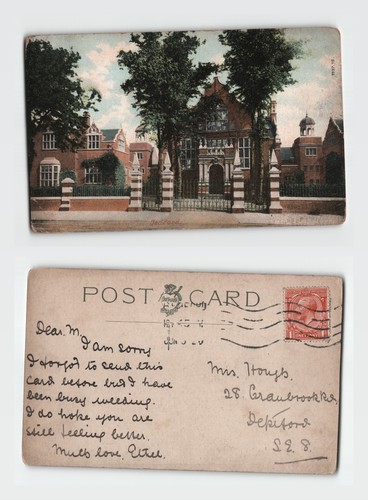 POST CARD
Dear M.
I am sorry
I forgot to send this
card before but I have
been busy weeding.
I do hope you are
still feeling better.
Much love, Ethel.
Mrs. Hongs,
28. Cranbrook Rd
Deptford
S.E.8.